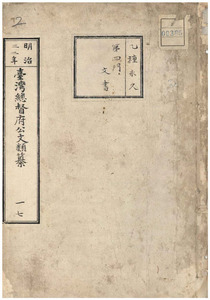 乙種永久
第四門
文書
明治
三二年
臺灣總督府公文類纂
一七